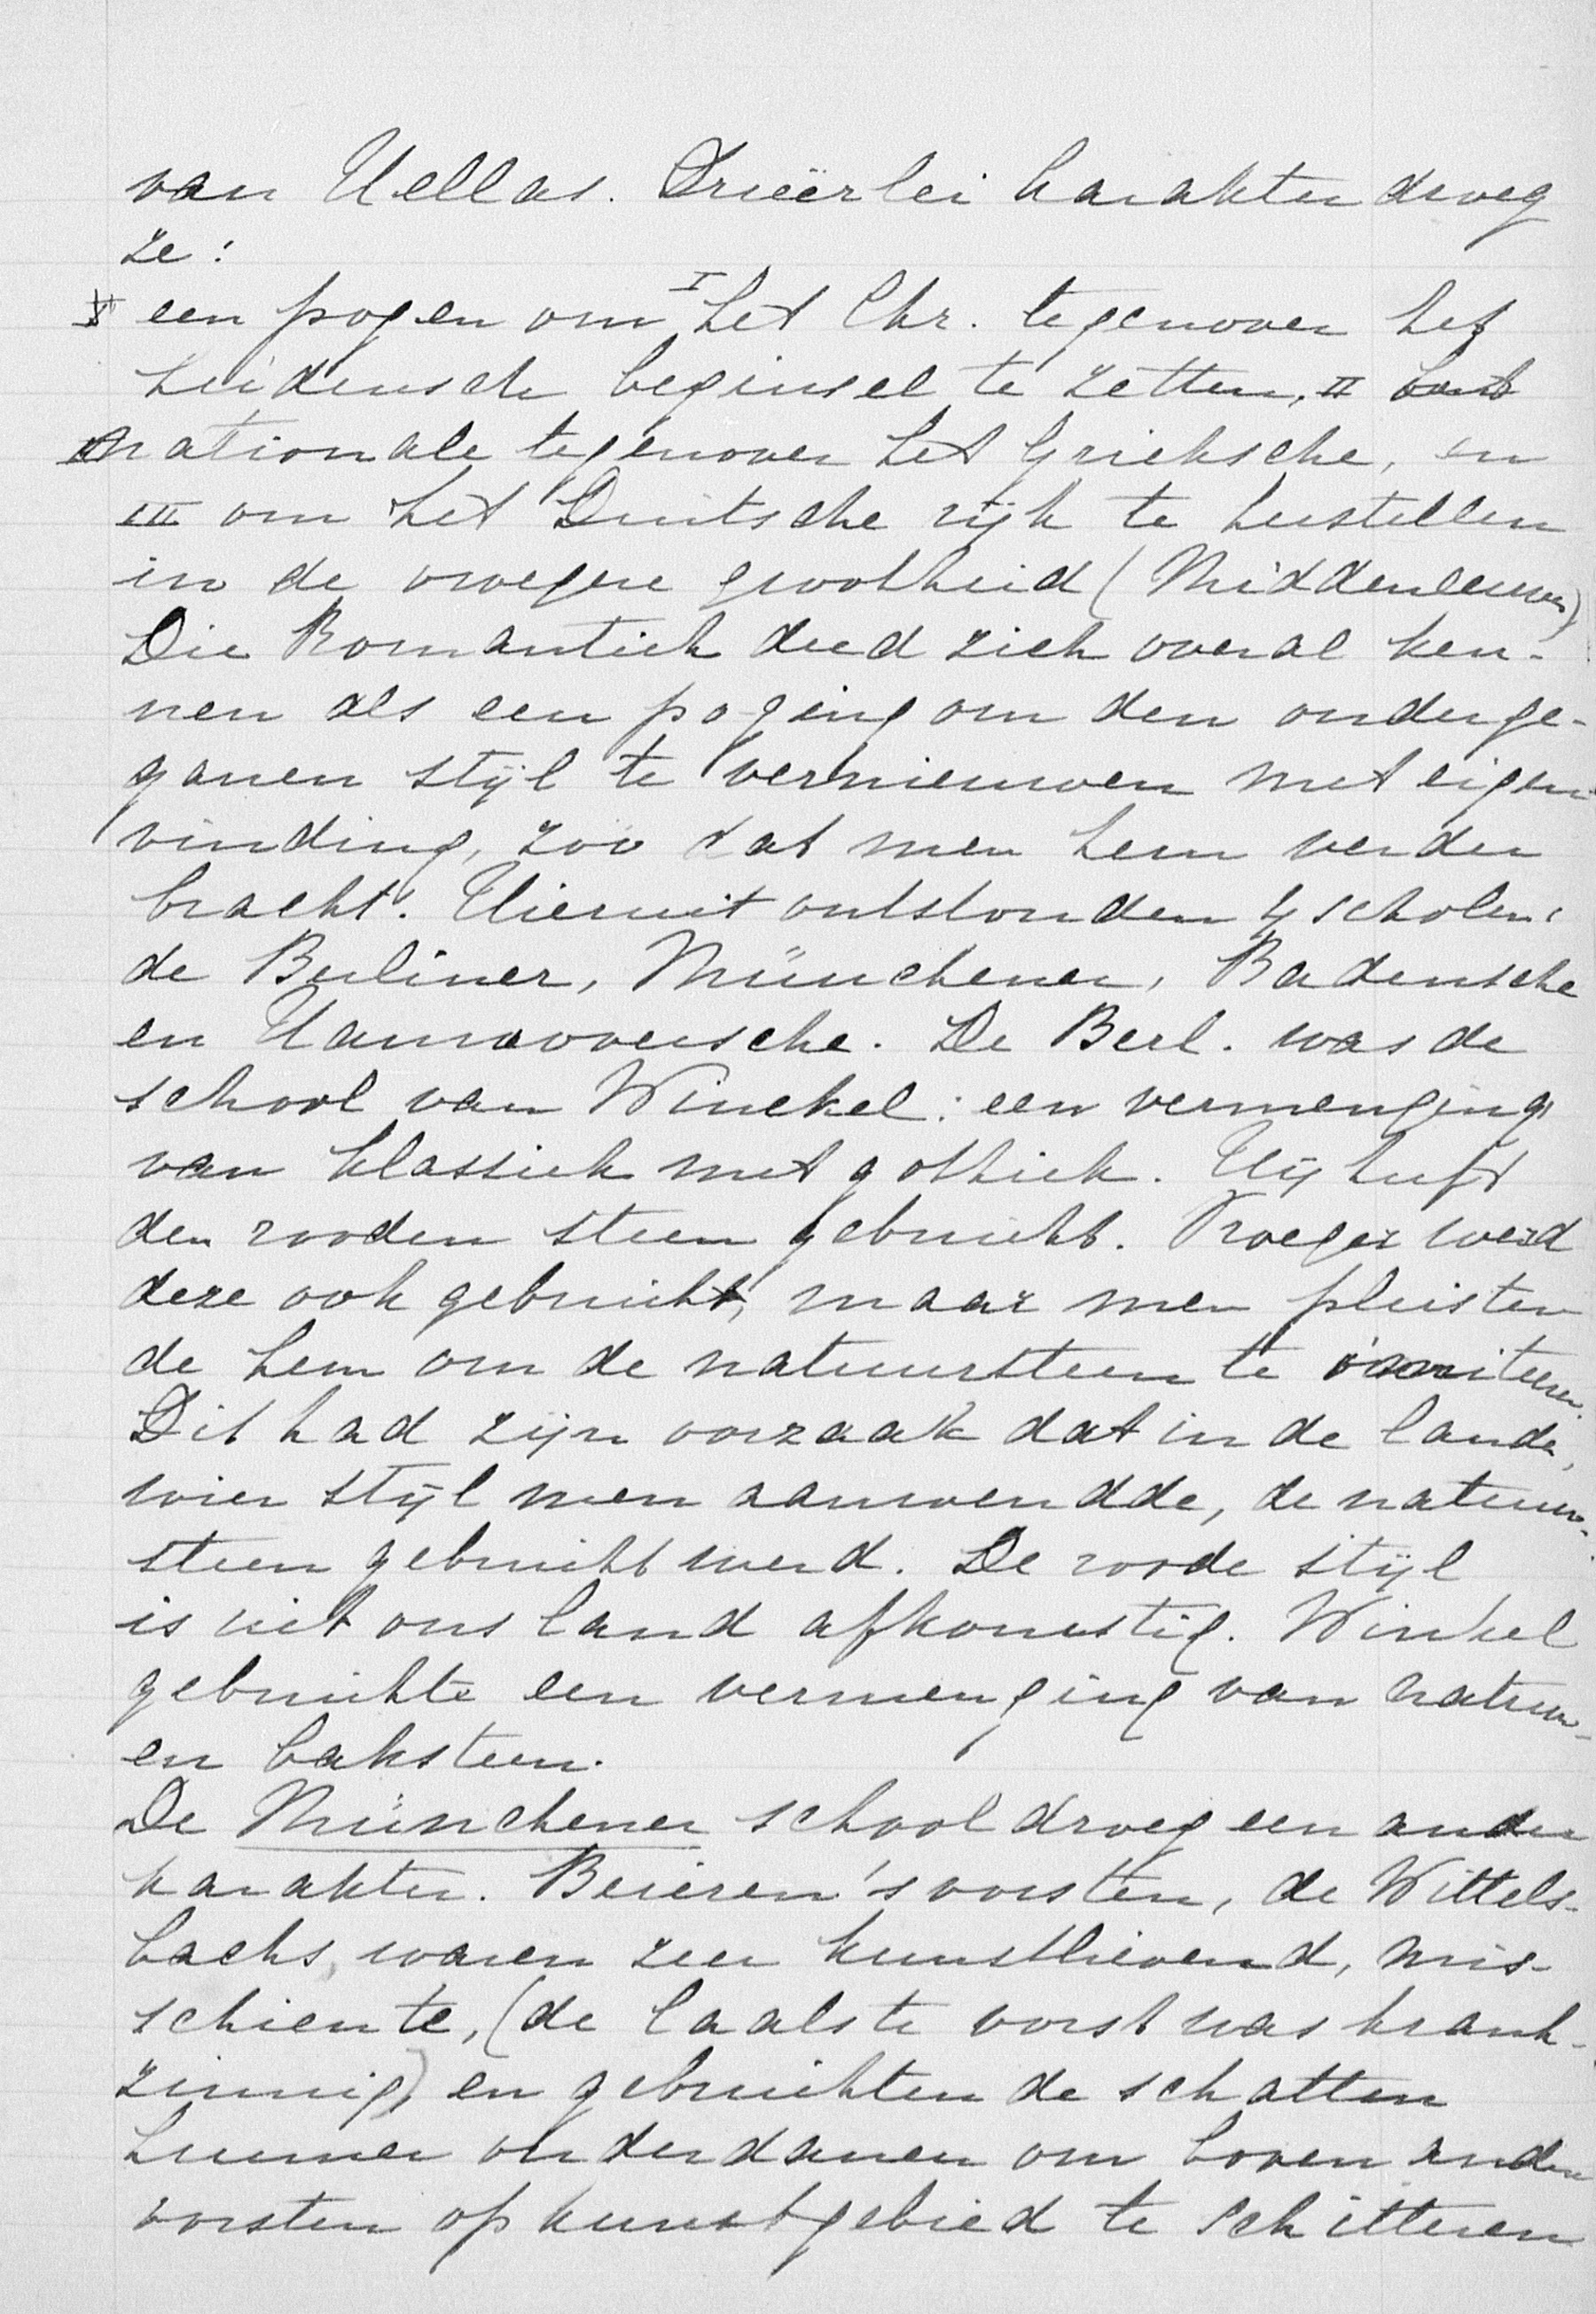 van Hellas. Drieërlei karakter droeg
ze:
een pogen om I het Chr. tegenover het
heidensch beginsel te zetten, II het
nationale tegenover het Grieksche, en
III om het Duitsche rijk te herstellen
in de vroegere grootheid (Middeneeuwen)
Die Romantiek deed zich overal ken-
nen als een poging om den onderge-
ganen stijl te vernieuwen met eigen
vinding, zoo dat men hem verder
bracht. Hieruit ontstonden 4 scholen:
de Berliner, Münchener, Badensche
en Hannoversche. De Berl. was de
school van Winckel: een vermenging
van klassiek met gothiek. Hij heeft
den rooden steen gebruikt. Vroeger werd
deze ook gebruikt, maar men pleister-
de hem om de natuursteen te imiteeren.
Dit had zijn oorzaak dat in de landen,
wier stijl men aanwendde, de natuur-
steen gebruikt werd. De roode stijl
is uit ons land afkomstig. Winkel
gebruikte een vermenging van natuur-
en baksteen.
De Münchener school droeg een ander
karakter. Beieren's vorsten, de Wittels-
bachs, waren zeer kunstlievend, mis-
schien te, (de laatste vorst was krank-
zinnig) en gebruikten de schatten
hunner onderdanen om boven andere
vorsten op kunstgebied te schitteren